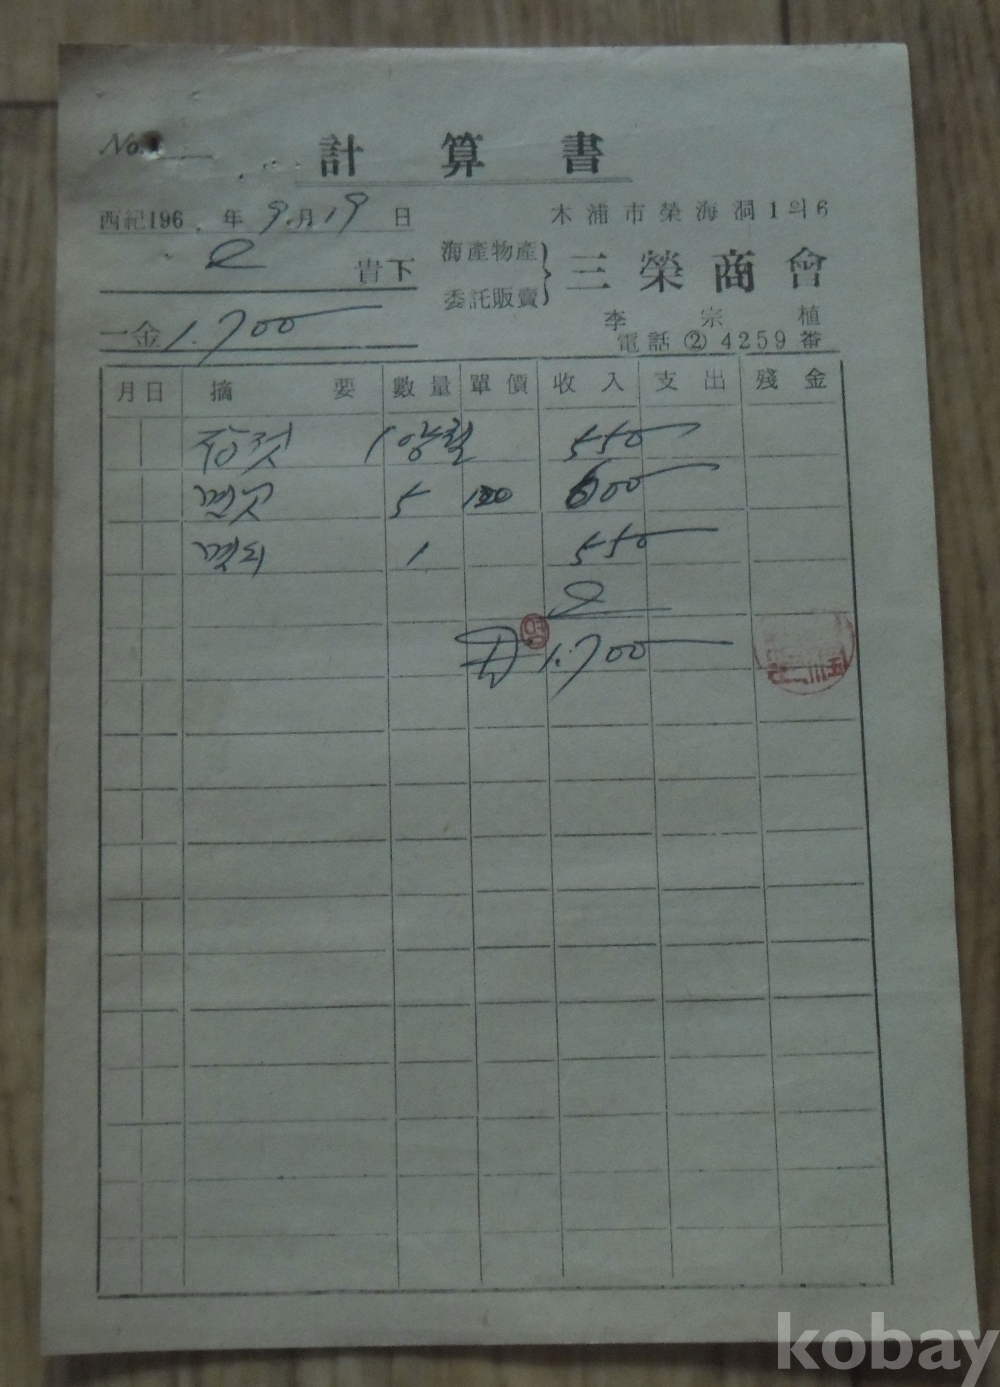 No.
計算書
西紀196 . 年 9.月 19 日
木浦市榮海洞1의6
貴下
海產物產
委託販賣
三榮商會
李宗植
一金 1.700
電話②4259番
月日 摘要 數量 單價 收入 支出 殘金
잡젓 1 양철 550
멸젓 5 120 600
멸치 1 550
1.700
kobay